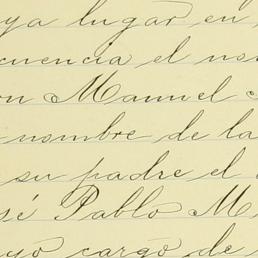 ya lugar en
cuencia el nom
on Manuel
nombre de la
su padre el
sé Pablo M
uyo cargo de